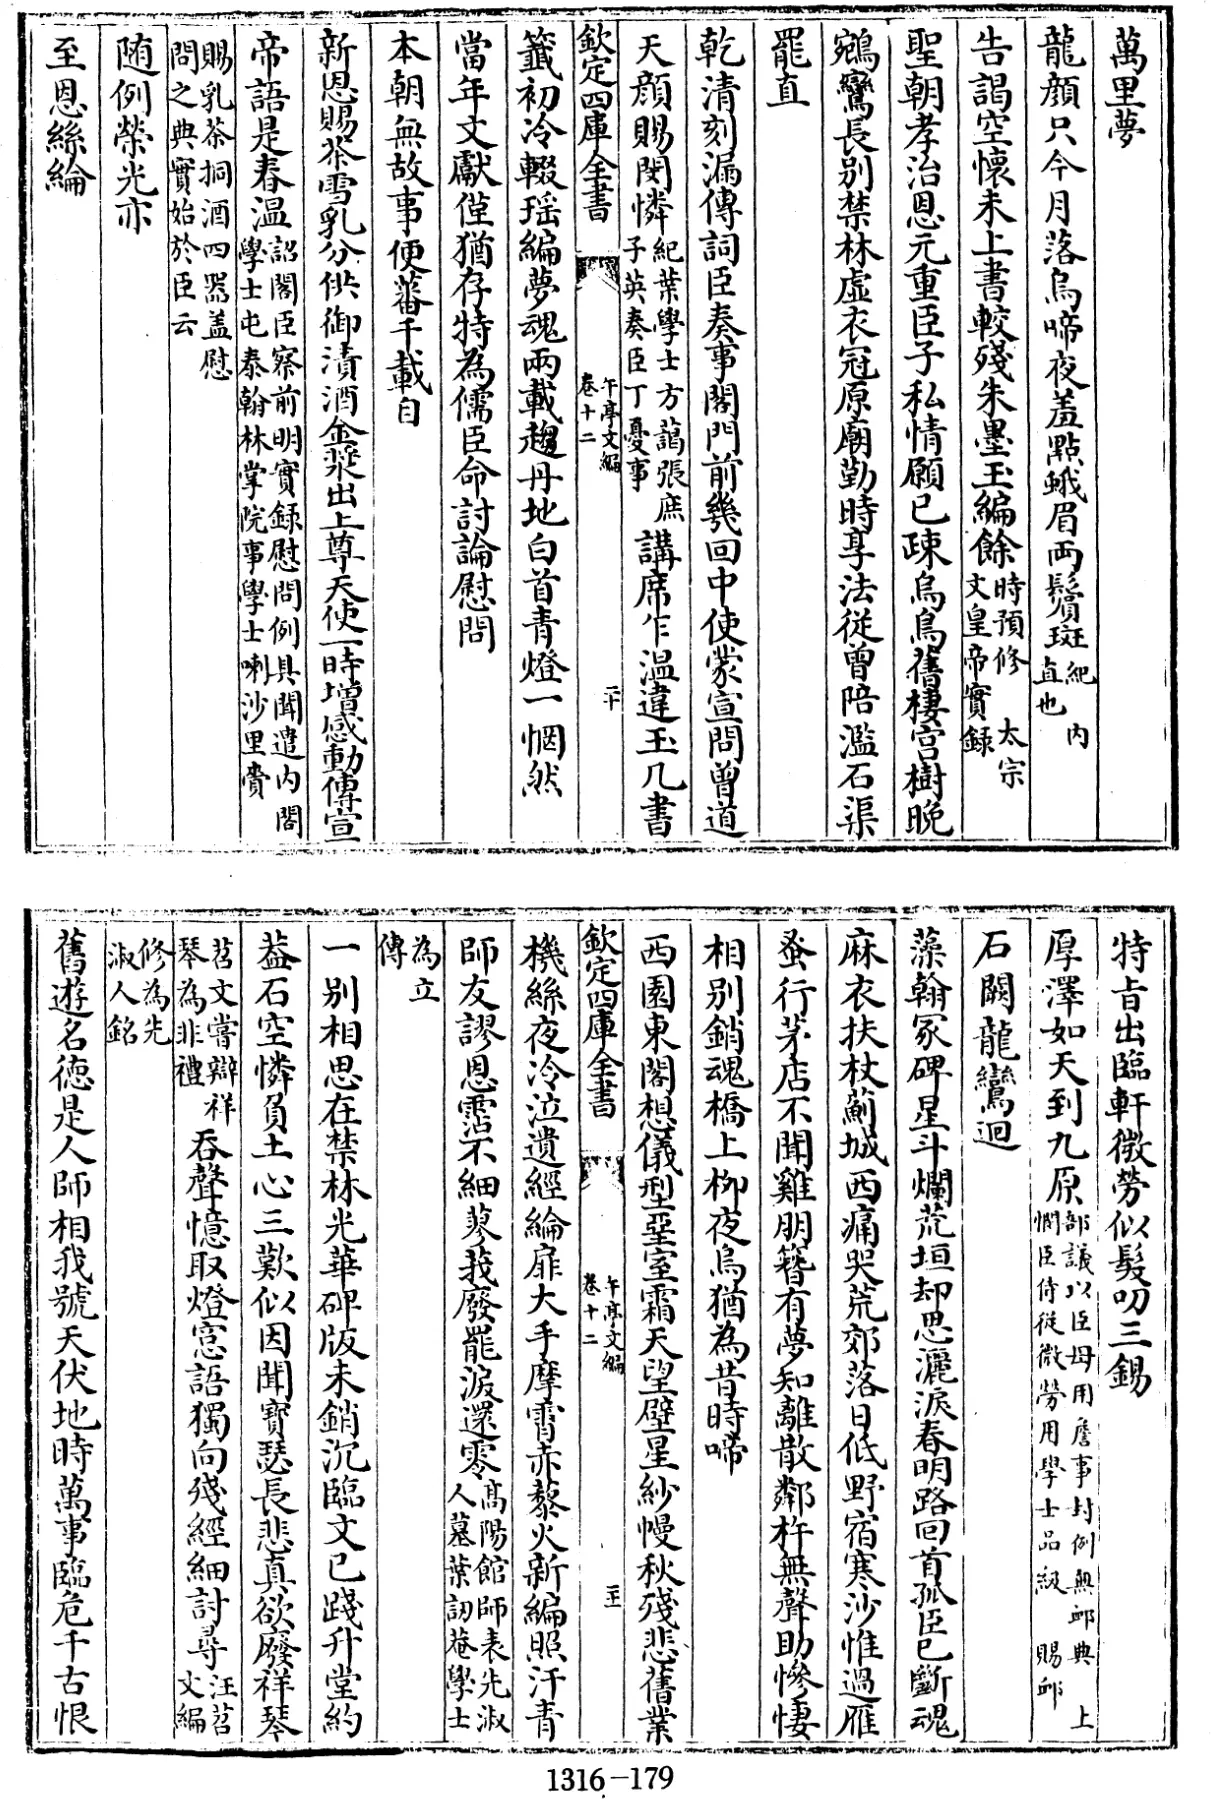 萬里夢
龍顔只今月落烏啼夜羞點蛾眉兩鬢斑紀内直也
告謁空懷未上書較殘朱墨玉編餘時預修太宗文皇帝實録
聖朝孝治恩元重臣子私情願已疎烏鳥舊棲宮樹晚
鵷鸞長别禁林虛衣冠原廟勤時享法從曾陪濫石渠
罷直
乾清刻漏傳詞臣奏事閣門前幾回中使蒙宣問曾道
天顔賜閔憐紀葉學士方藹張庶子英奏臣丁憂事講席乍温違玉几書
欽定四庫全書
午亭文編
卷十二
二十
籤初冷輟瑶編夢魂兩載趨丹地白首青燈一惘然
當年文獻僅猶存特為儒臣命討論慰問
本朝無故事便蕃千載自
新恩賜茶雪乳分供御漬酒金漿出上尊天使一時增感動傳宣
帝語是春温詔閣臣察前明實録慰問例具聞遣内閣學士屯泰翰林掌院事學士喇沙里賷
賜乳茶挏酒四器盖慰問之典實始於臣云
随例榮光亦
至恩絲綸
特旨出臨軒微勞似髮叨三錫
厚澤如天到九原部議以臣母用詹事封例無䘏典上憫臣侍從微勞用學士品級賜䘏
石闕龍鸞迴
藻翰冢碑星斗爛荒垣却思灑淚春明路回首孤臣已斷魂
麻衣扶杖薊城西痛哭荒郊落日低野宿寒沙惟過雁
蚤行茅店不聞雞朋簪有夢知離散鄰杵無聲助慘悽
相别銷魂橋上栁夜烏猶為昔時啼
西園東閣想儀型堊室霜天望壁星紗幔秋殘悲舊業
欽定四庫全書
午亭文編
卷十二
二十一
機絲夜冷泣遺經綸扉大手摩霄赤藜火新編照汗青
師友謬恩霑不細蓼莪廢罷淚還零高陽館師表先淑人墓葉訒菴學士
為立傳
一别相思在禁林光華碑版未銷沉臨文已踐升堂約
葢石空憐負土心三歎似因聞寶瑟長悲真欲廢祥琴
苕文嘗辯祥琴為非禮吞聲憶取燈窓語獨向殘經細討尋汪苕文編
修為先淑人銘
舊遊名徳是人師相我號天伏地時萬事臨危千古恨
1316-179